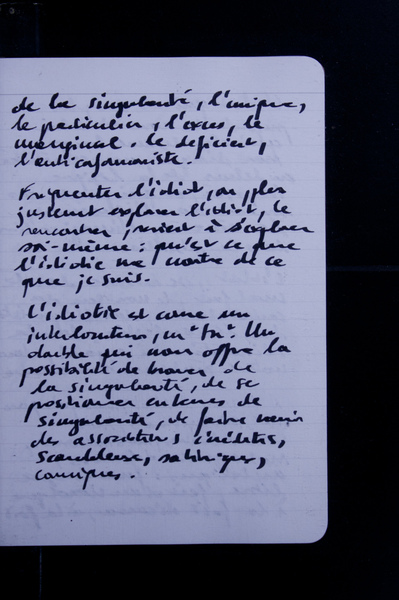 de la singularité, l'unique,
le particulier, l'excès, le
marginal. le déficient,
l'anticonformiste.
Fréquenter l'idiot, ou plus
justement explorer l'idiot, le
rencontrer, revient à s'explorer
soi-même : qu'est ce que
l'idiotie me montre de ce
que je suis.
L'idiotie est comme un
interlocuteur, un "tu". Un
double qui nous offre la
possibilité de de
la singularité, de se
positionner en termes de
singularité, de faire venir
des associations inédites,
scandaleuse, satiriques,
comiques.